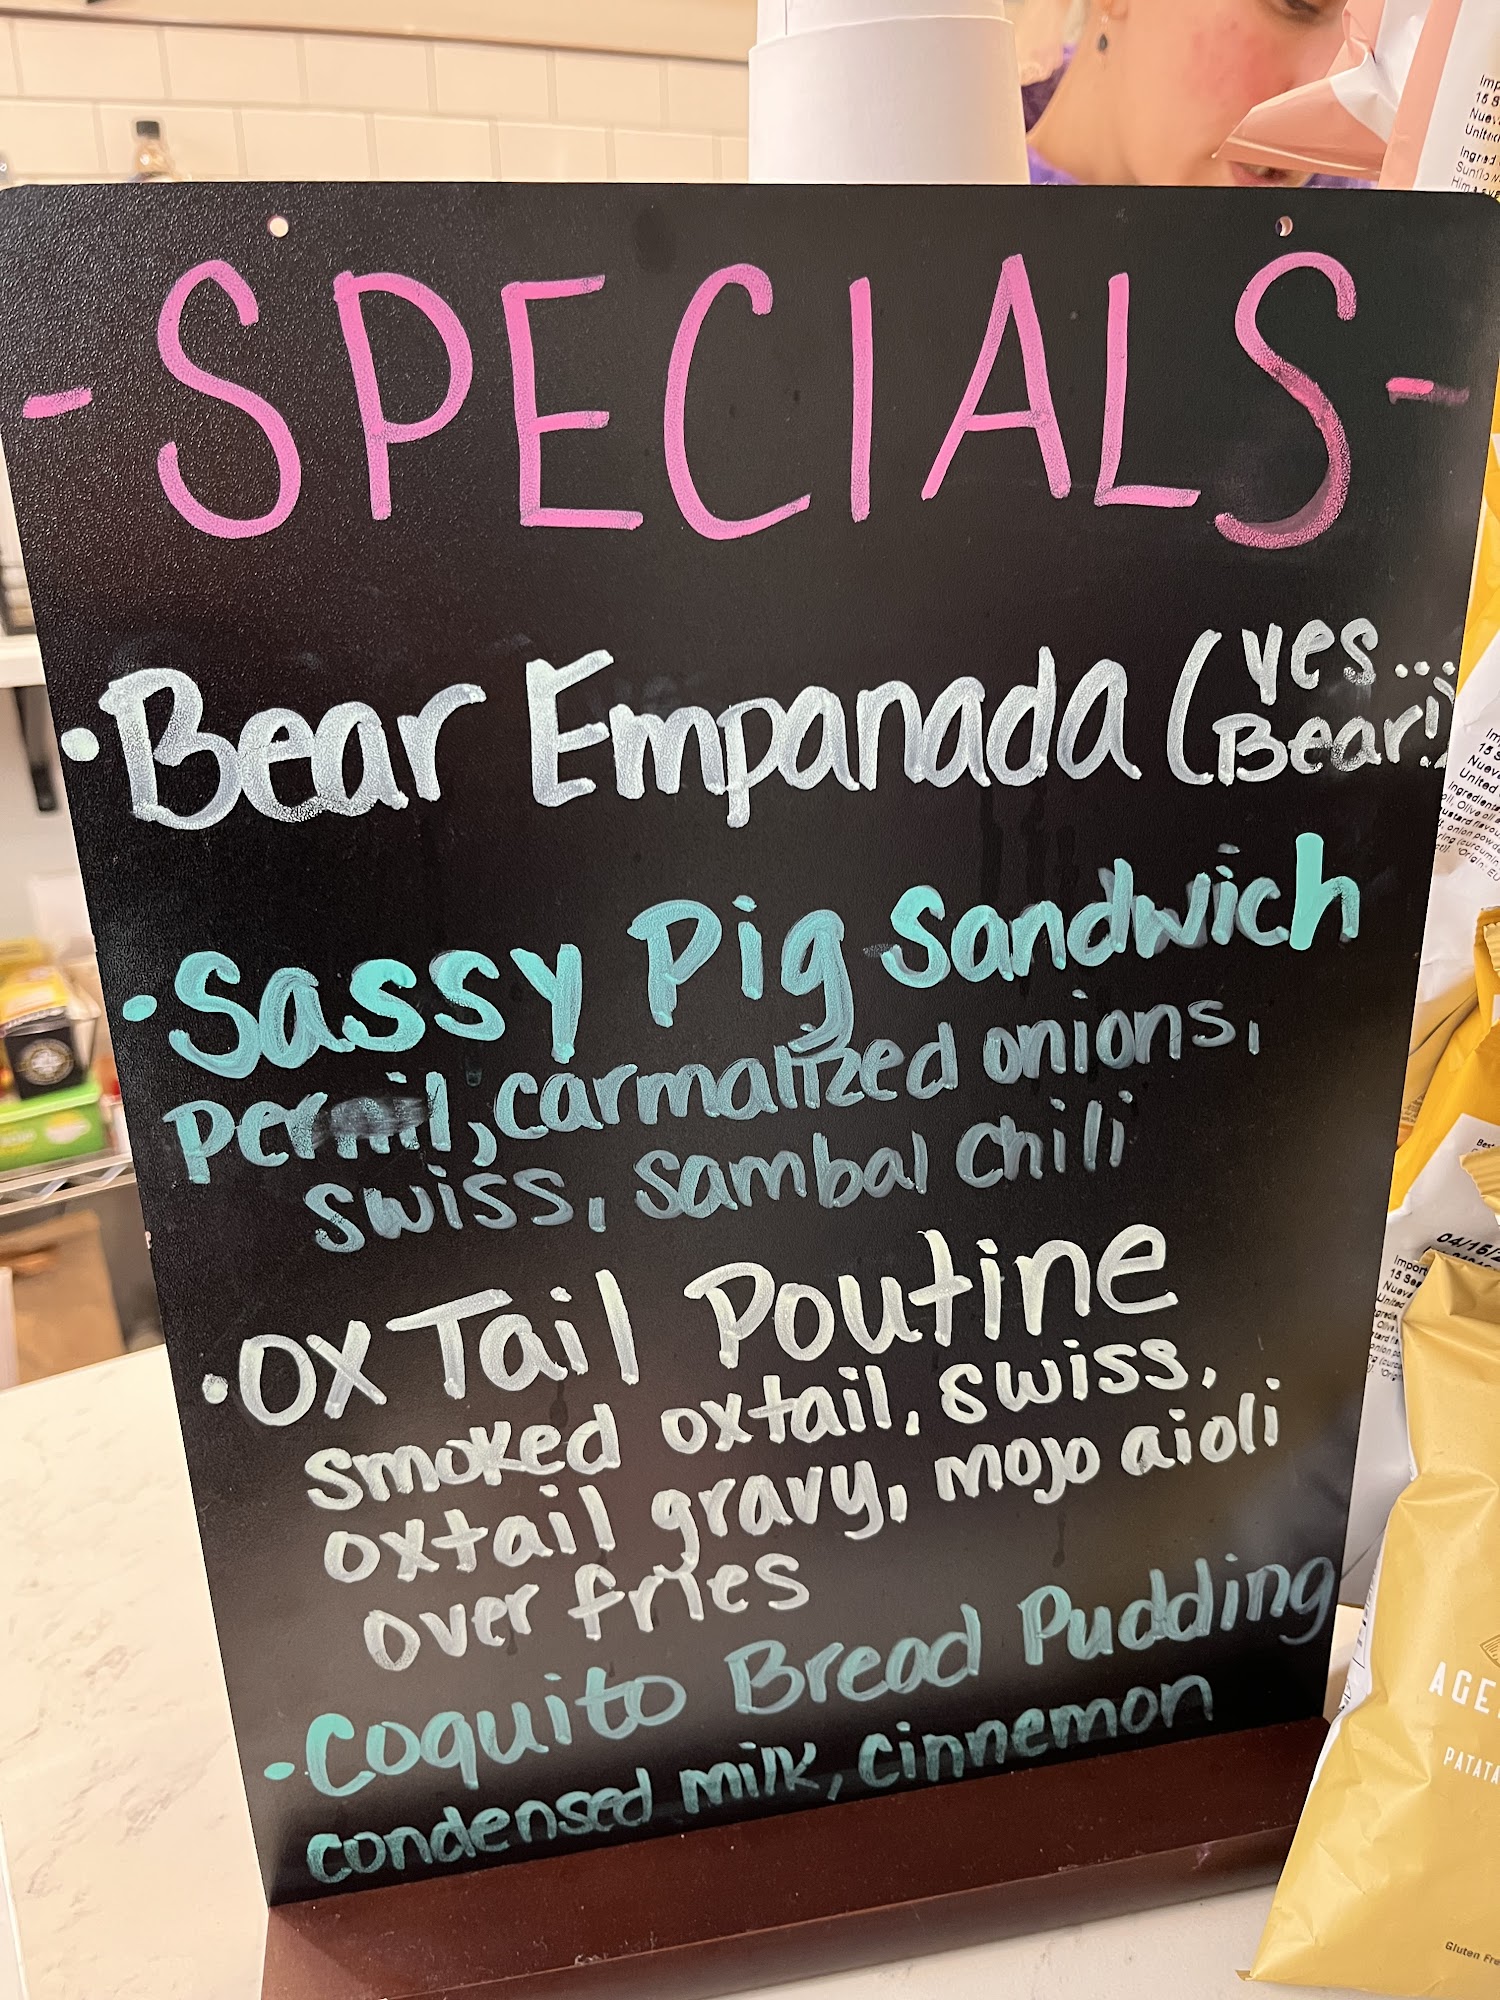 -SPECIALS-
·Bear Empanada (yes...
Bear!)
·Sassy Pig Sandwich
pernil, carmalized onions,
swiss, sambal chili
·Ox Tail Poutine
smoked oxtail, swiss,
oxtail gravy, mojo aioli
over fries
·Coquito Bread Pudding
condensed milk, cinnemon
04/15/2
AGE
PATATA
Gluten Fre